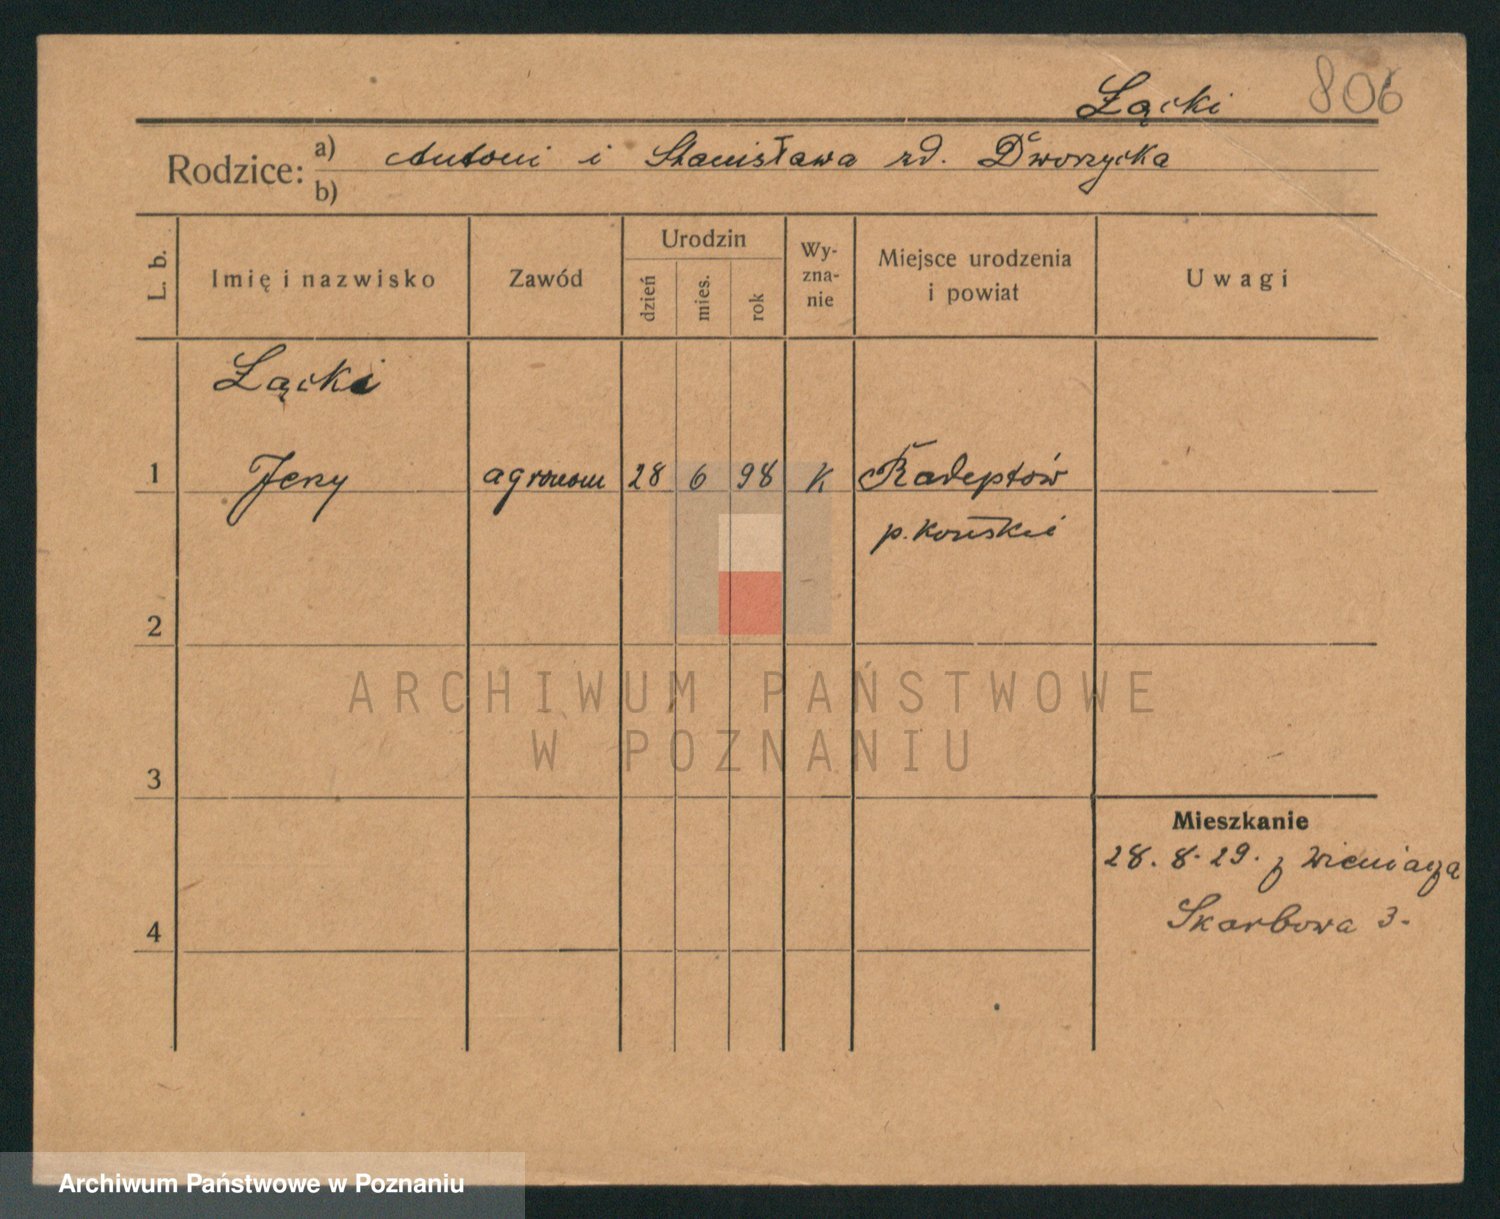 Łącki 806
Rodzice:
a) Antoni i Stanisława zd. Dworzycka
b)
L. b.
Imię i nazwisko
Zawód
Urodzin
dzień
mies.
rok
Wy-
zna-
nie
Miejsce urodzenia
i powiat
Uwagi
Łącki
1 Jerzy agronom 28 6 98 K Radeptów
p. Końskie
2
ARCHIWUM PAŃSTWOWE
W POZNANIU
3
Mieszkanie
28. 8. 29. z Wieniacza
Skarbowa 3.
4
Archiwum Państwowe w Poznaniu